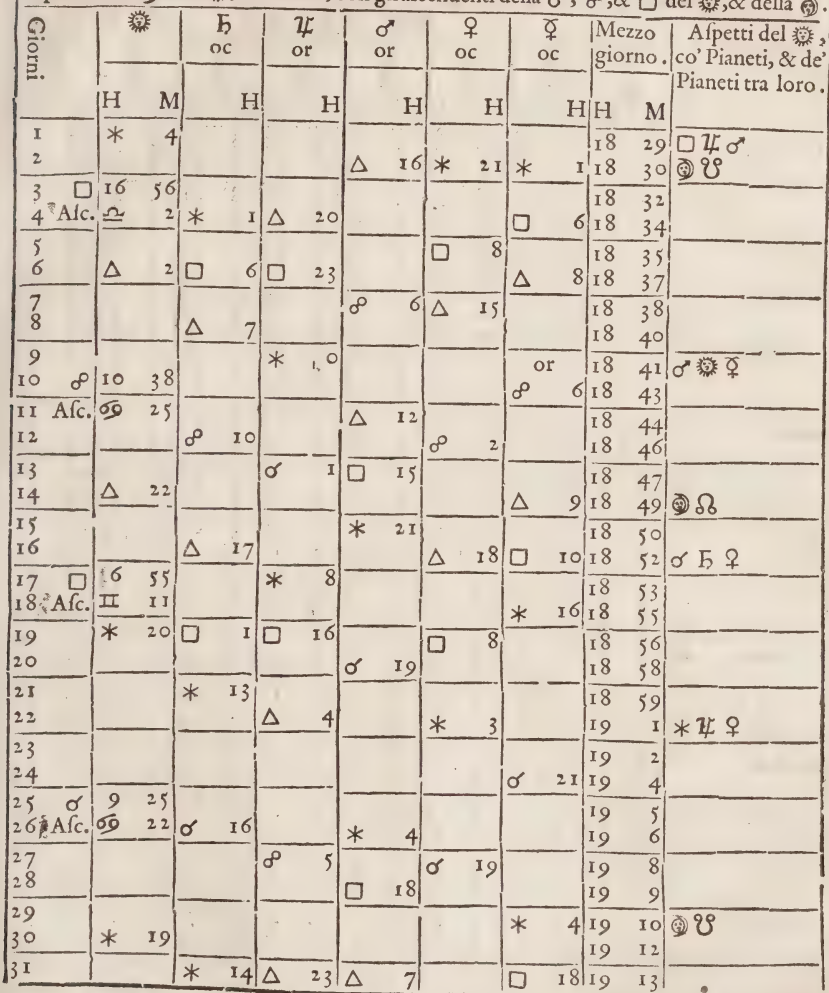 ☌, ☍, & □ del ☀, & della ☽.
Giorni ☀ ♄ ♃ ♂ ♀ ☿ Mezzo Aſpetti del ☀,
oc or or oc oc giorno. co' Pianeti, & de'
Pianeti tra loro.
H M H H H H H H M
1 ✶ 4 18 29 □ ♃ ♂
2 △ 16 ✶ 21 ✶ 1 18 30 ☽ ☋
3 □ 16 56 18 32
4 Aſc. ♎ 2 ✶ 1 △ 20 □ 6 18 34
5 □ 8 18 35
6 △ 2 □ 6 □ 23 △ 8 18 37
7 ☍ 6 △ 15 18 38
8 △ 7 18 40
9 ✶ 0 or 18 41 ☌ ☀ ☿
10 ☍ 10 38 ☍ 6 18 43
11 Aſc. ♋ 25 △ 12 18 44
12 ☍ 10 ☍ 2 18 46
13 ☌ 1 □ 15 18 47
14 △ 22 △ 9 18 49 ☽ ☊
15 ✶ 21 18 50
16 △ 17 △ 18 □ 10 18 52 ☌ ♄ ♀
17 □ 6 55 ✶ 8 18 53
18 Aſc. ♊ 11 ✶ 16 18 55
19 ✶ 20 □ 1 □ 16 □ 8 18 56
20 ☌ 19 18 58
21 ✶ 13 18 59
22 △ 4 ✶ 3 19 1 ✶ ♃ ♀
23 19 2
24 ☌ 21 19 4
25 ☌ 9 25 19 5
26 Aſc. ♋ 22 ☌ 16 ✶ 4 19 6
27 ☍ 5 ☌ 19 19 8
28 □ 18 19 9
29 ✶ 4 19 10 ☽ ☋
30 ✶ 19 19 12
31 ✶ 14 △ 23 △ 7 □ 18 19 13